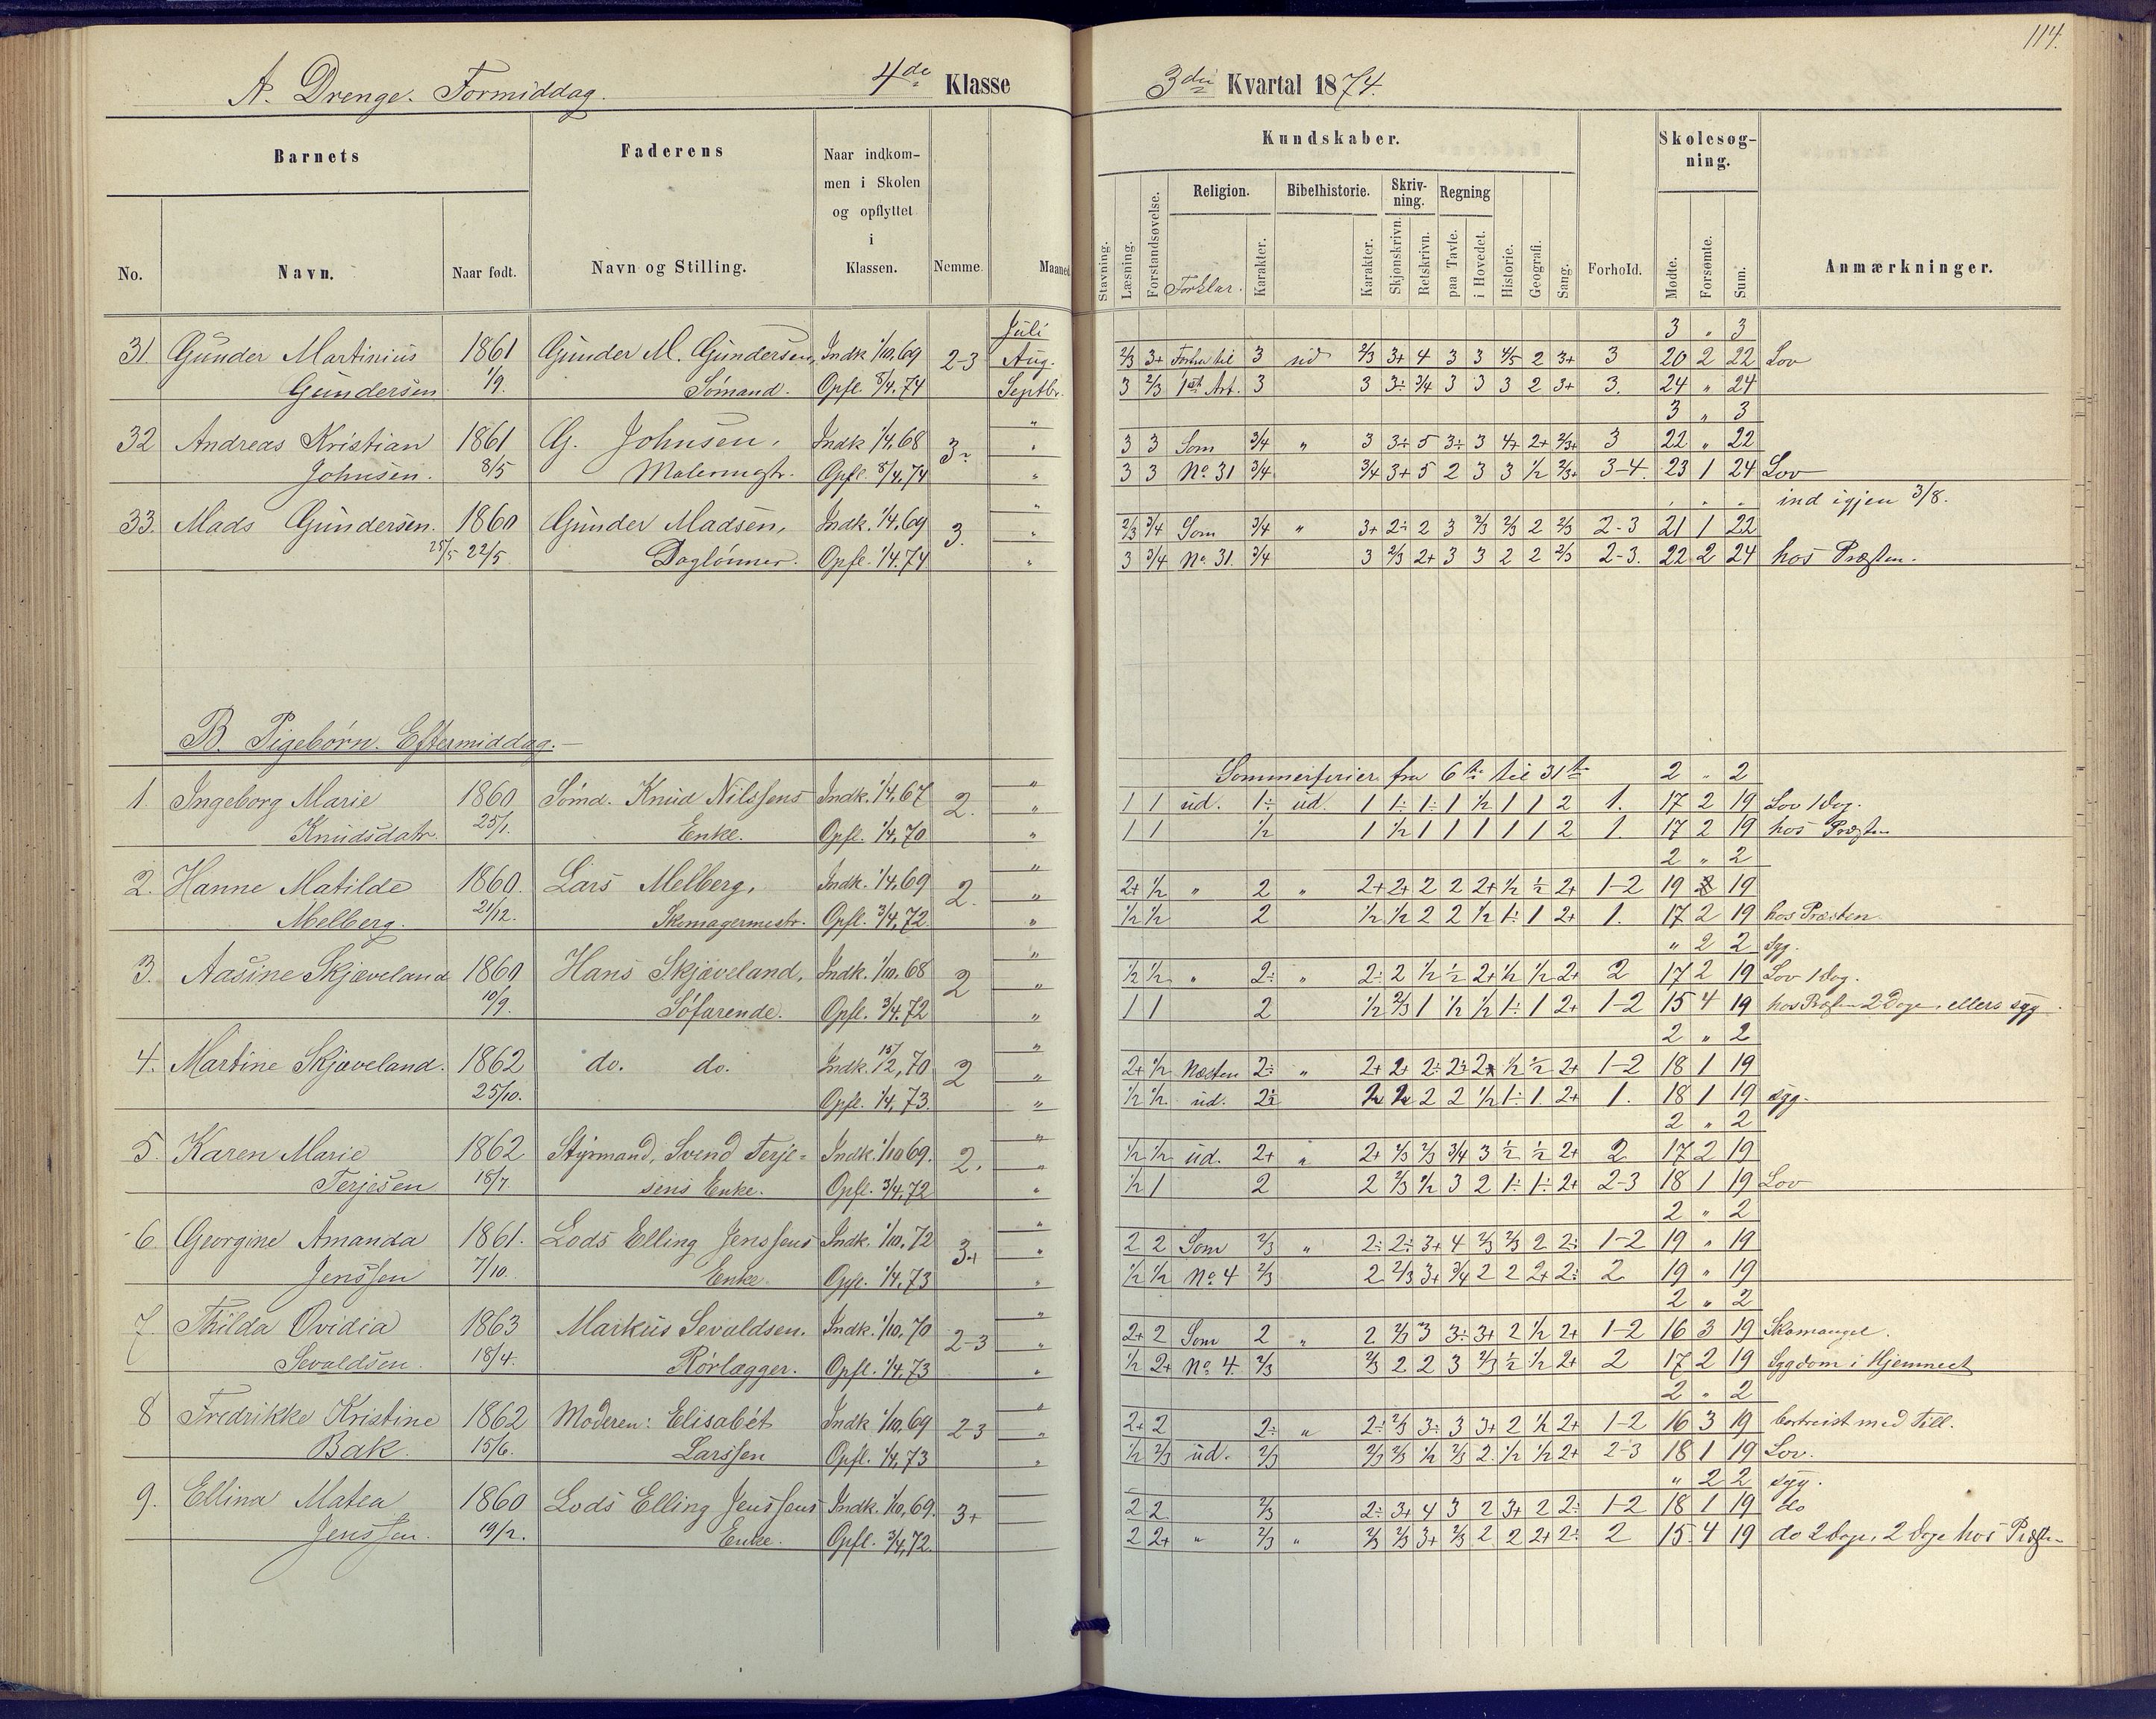 114.
A. Drenge. Formiddag. 4de Klasse
3die Kvartal 1874.
Barnets
Faderens
Naar indkom-
men i Skolen
og opflyttet
i
Klassen.
No.
Navn.
Naar født.
Navn og Stilling.
Nemme.
Maaned
Kundskaber.
Skolesøg-
ning.
Stavning.
Læsning.
Forstandsøvelse.
Religion.
Forklar.
Karakter.
Bibelhistorie.
Karakter.
Skriv-
ning.
Skjønskrivn.
Retskrivn.
Regning
paa Tavle.
i Hovedet.
Historie.
Geografi.
Sang.
Forhold.
Mødte.
Forsømte.
Sum.
Anmærkninger.
Juli 3 " 3
31. Gunder Martinius 1861 Gunder M. Gundersen, Indk. 1/10,69 2-3 Aug. 2/3 3+ Forfra til 3 ud 2/3 3+ 4 3 3 4/5 2 3+ 3 20 2 22 Lov
Gundersen 1/9. Sømand. Opfl. 8/4,74 Septbr. 3 2/3 1st Art. 3 3 3÷ 3/4 3 3 3 2 3+ 3. 24 " 24
" 3 " 3
32 Andreas Kristian 1861 G. Johnsen, Indk 1/4,68 3÷ " 3 3 Som 3/4 " 3 3÷ 5 3÷ 3 4+ 2+ 2/3+ 3 22 " 22
Johnsen. 8/5 Malermstr. Opfl. 8/4,74 " 3 3 No. 31 3/4 3/4 3+ 5 2 3 3 1/2 2/3+ 3-4. 23 1 24 Lov
" " " " ind igjen 3/8.
33. Mads Gundersen. 1860 Gunder Madsen, Indk. 1/4,69 3. " 2/3 3/4 Som 3/4 " 3+ 2÷ 2 3 2/3 2/3 2 2/3 2-3 21 1 22
25/5 22/5 Daglønner. Opfl. 1/4,74 " 3 3/4 No. 31. 3/4 3 2/3 2+ 3 3 2 2 2/3 2-3. 22 2 24 hos Præsten.
B. Pigebørn. Eftermiddag.
" Sommerferier fra 6te til 31te 2 " 2
1. Ingeborg Marie 1860 Sømd. Knud Nilssens Indk. 1/4,67 2. " 1 1 ud. 1÷ ud. 1 1÷ 1÷ 1 1/2 1 1 2 1. 17 2 19 Lov 1 Dag.
Knudsdatr. 25/1. Enke. Opfl. 1/4,70 " 1 1 1/2 1 1/2 1 1 1 1 1 2 1. 17 2 19 hos Præsten
" 2 " 2
2. Hanne Matilde 1860. Lars Melberg, Indk. 1/4,69 2. " 2+ 1/2 " 2 " 2+ 2+ 2 2 2+ 1/2 1/2 2+ 1-2 19 19
Melberg. 21/12. Skomagermestr. Opfl. 3/4,72. " 1/2 1/2 2 1/2 1/2 2 2 1/2 1÷ 1 2+ 1. 17 2 19 hos Præsten.
" " 2 2 Syg.
3. Aasine Skjæveland 1860 Hans Skjæveland, Indk. 1/10,68 2 " 1/2 1/2 " 2÷ " 2÷ 2 1/2 1/2 2+ 1/2 1/2 2+ 2 17 2 19 Lov 1 Dag.
10/9. Søfarende. Opfl. 3/4,72 " 1 1 2 1/2 2/3 1 1/2 1/2 1÷ 1 2+ 1-2 15 4 19 hos Præsten 2 Dage, ellers syg.
" 2 " 2
4. Martine Skjæveland. 1862 do. do. Indk. 15/2,70 2 " 2+ 1/2 Næsten 2÷ " 2+ 2+ 2÷ 2÷ 2+ 1/2 1/2 2+ 1-2 18 1 19
25/10. Opfl. 1/4,73. " 1/2 1/2 ud. 2÷ 2 2 1/2 1÷ 1 2+ 1. 18 1 19 syg.
" 2 " 2
5. Karen Marie 1862 Styrmand, Svend Terje- Indk. 1/10 69. 2. " 1/2 1/2 ud. 2+ " 2+ 2/3 2/3 3/4 3 1/2 1/2 2+ 2 17 2 19
Terjesen 18/7. sens Enke. Opfl. 3/4,72 " 1/2 1 2 2 2/3 1/2 3 2 1÷ 1÷ 2+ 2-3 18 1 19 Lov
" 2 " 2
6 Georgine Amanda 1861. Lods Elling Jenssens Indk. 1/10,72 3+ " 2 2 Som 2/3 " 2÷ 2÷ 3+ 4 2/3 2/3 2 2÷ 1-2 19 " 19
Jenssen 7/10. Enke. Opfl. 1/4,73 " 1/2 1/2 No. 4 2/3 2 2/3 3+ 3/4 2 2 2+ 2÷ 2 19 " 19
" 2 " 2
7. Thilda Ovidia 1863 Markus Sevaldsen. Indk. 1/10,70 2-3 " 2+ 2 Som 2 " 2 2/3 3 3÷ 3+ 2 1/2 2+ 1-2 16 3 19 Skomangel.
Sevaldsen. 18/4. Rørlægger. Opfl. 1/4,73 " 1/2 2+ No. 4. 2/3 2/3 2 2 3 2/3 1/2 1/2 2+ 2 17 2 19 Sygdom i Hjemmet
" 2 " 2
8 Fredrikke Kristine 1862 Moderen: Elisabét Indk 1/10,69 2-3 " 2+ 2 2÷ " 2÷ 2/3 3÷ 3 3+ 2 1/2 2+ 1-2 16 3 19 bortreist med Till.
Bak. 15/6. Larssen Opfl. 1/4,73 " 1/2 2/3 ud. 2/3 2/3 2/3 1/2 2/3 2 1/2 1/2 2+ 2-3 18 1 19 Lov.
" 2 2 syg.
9. Ellina Matea 1860 Lods Elling Jenssens Indk. 1/10,69. 3+ 2 2 2/3 2÷ 3+ 4 3 2 3+ 2 2÷ 1-2 18 1 19 do
Jenssen. 19/2. Enke. Opfl. 3/4,72. 2 2+ " 2/3 " 2/3 2/3 3+ 2/3 2 2 2+ 2÷ 2 15 4 19 do 2 Dage, 2 Dage hos Præsten